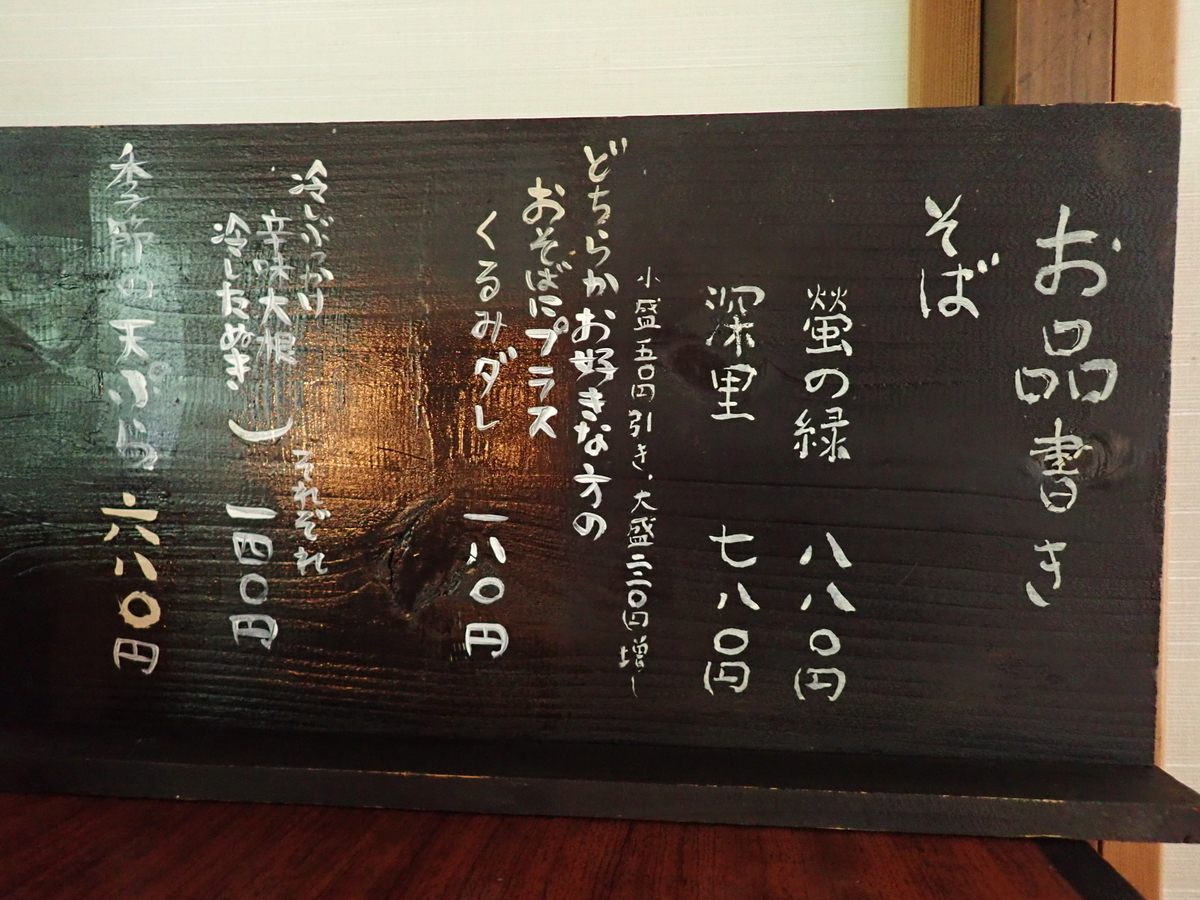 お品書き
そば
螢の緑 八八〇円
深里 七八〇円
小盛五〇円引き、大盛二二〇円増し
どちらかお好きな方の
おそばにプラス
くるみダレ 一八〇円
冷ぶっかけ
辛味大根
冷したぬき
それぞれ
一四〇円
季節の天ぷら 六八〇円